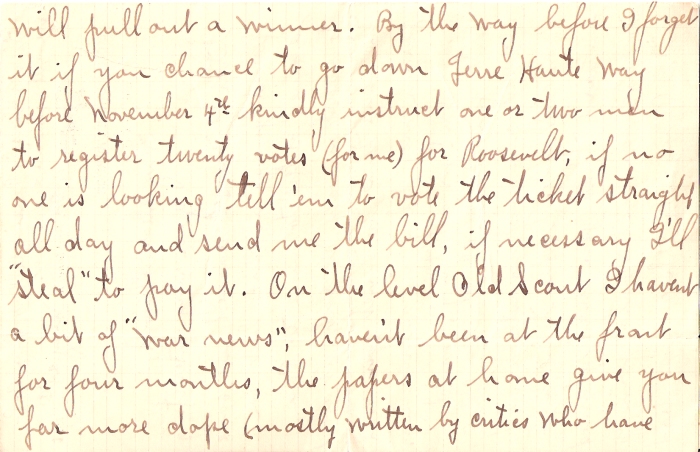 will pull out a winner. By the way before I forget
it if you chance to go down Terre Haute way
before November 4th kindly instruct one or two men
to register twenty votes (for me) for Roosevelt, if no
one is looking tell 'em to vote the ticket straight
all day and send me the bill, if necessary I'll
"steal" to pay it. On the level Old Scout I havent
a bit of "war news", haven't been at the front
for four months, the papers at home give you
far more dope (mostly written by critics who have